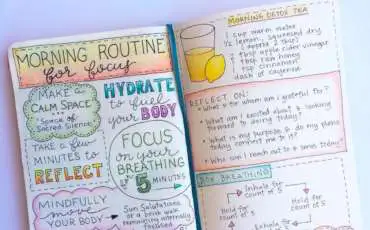 MORNING ROUTINE
for focus
MAKE A
CALM SPACE
Space of
Sacred Silence
TAKE A FEW
MINUTES TO
REFLECT
HYDRATE
to fuel
your BODY
FOCUS
on your
BREATHING
5 MINUTES
MINDFULLY
move
YOUR BODY
Sun Salutations
or a brisk walk
remaining internally
focused
MORNING DETOX TEA
1 cup warm water
1/2 lemon, squeezed dry
2 tbsp apple cider vinegar
1 tbsp raw honey
cinnamon
dash of cayenne
REFLECT ON:
• What & for whom am I grateful for?
• What am I excited about & looking
forward to doing today?
• What is my purpose & do my plans
today connect me to it?
• Who can I reach out to & serve today?
BOX BREATHING
Inhale for
count of 5
Hold for
count of 5
Hold for
count of 5
Exhale for
count of 5